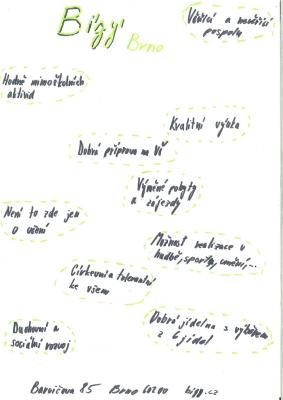 Bigy
Brno
Věřící a nevěřící
pospolu
Hodně mimoškolních
aktivid
Kvalitní výuka
Dobrá příprava na VŠ
Výměné pobyty
a zájezdy
Není to zde jen
o učení
Možnost realizace v
hudbě, sportu, umění,...
Církevní a tolerantní
ke všem
Duchovní a
sociální rozvoj
Dobrá jídelna s výběrem
z 6 jídel
Barvičova 85 Brno 60200 bigy.cz